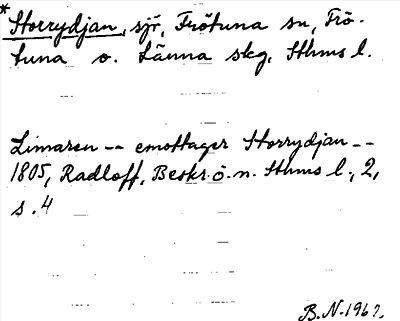 * Storrydjan, sjö, Frötuna sn, Frö-
tuna o. Länna skg, Sthms l.
Limaren -- emottager Storrydjan --
1805, Radloff, Beskr. ö. n. Sthms l., 2,
s. 4
B.N. 1967.